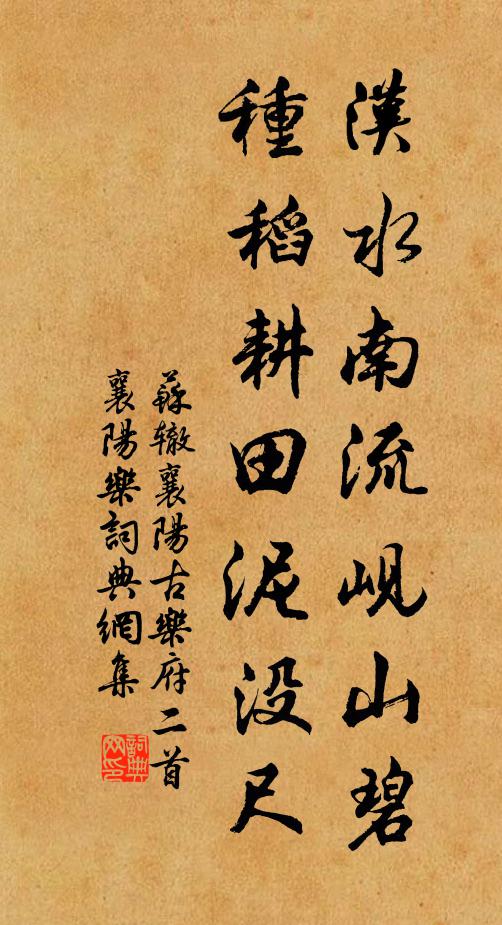 漢水南流峴山碧
種稻耕田泥没尺
蘇轍襄陽古樂府二首
襄陽樂詞典網集
詞典網印